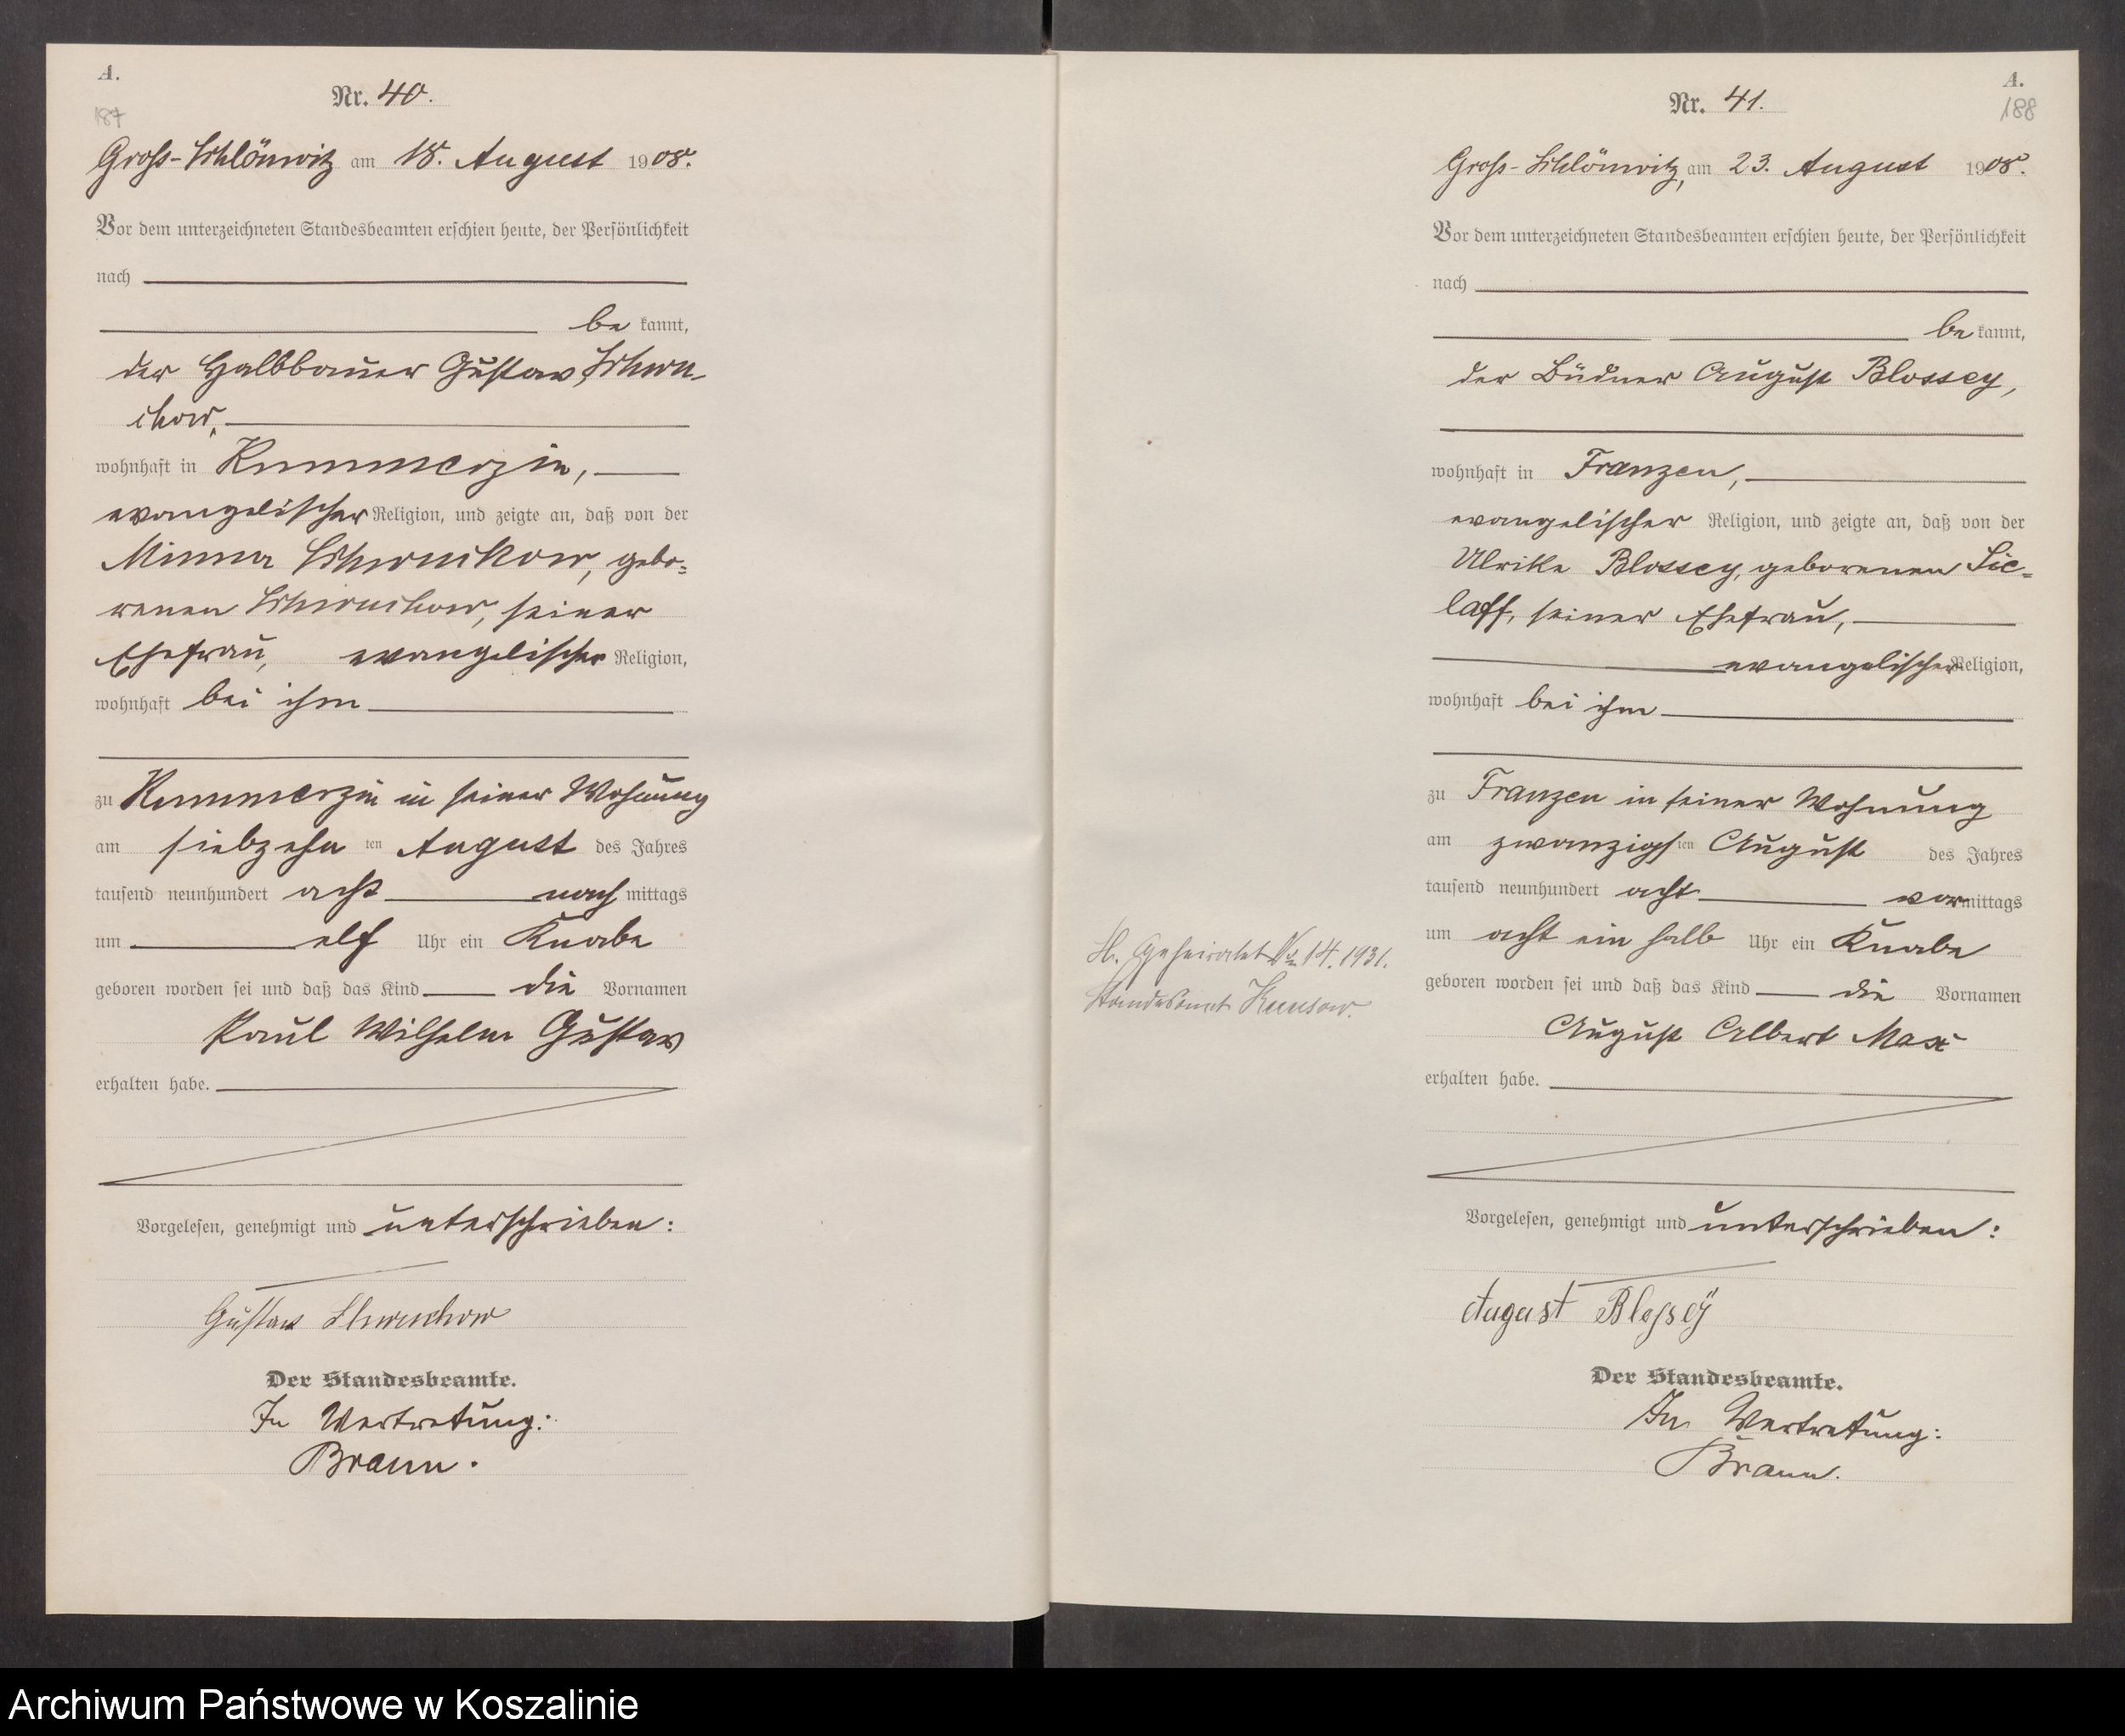 A.
187
Nr. 40.
Groß-Schlönwitz am 18. August 1908.
Vor dem unterzeichneten Standesbeamten erschien heute, der Persönlichkeit
nach
be kannt,
der Halbbauer Gustav
wohnhaft in Kummerzin,
evangelischer Religion, und zeigte an, daß von der
Minna gebo-
renen seiner
Ehefrau, evangelischer Religion,
wohnhaft bei ihm
zu Kummerzin in seiner Wohnung
am siebzehn ten August des Jahres
tausend neunhundert acht nach mittags
um elf Uhr ein Knabe
geboren worden sei und daß das Kind die Vornamen
Paul Wilhelm Gustav
erhalten habe.
Vorgelesen, genehmigt und unterschrieben:
Gustav
Der Standesbeamte.
In Vertretung:
Braun.
A.
188
Nr. 41.
Groß-Schlönwitz, am 23. August 1908.
Vor dem unterzeichneten Standesbeamten erschien heute, der Persönlichkeit
nach
be kannt,
der Büdner August Blossey,
wohnhaft in Franzen,
evangelischer Religion, und zeigte an, daß von der
Ulrike Blossey, geborenen Lie-
laff, seiner Ehefrau,
evangelischer Religion,
wohnhaft bei ihm
zu Franzen in seiner Wohnung
am zwanzigs ten August des Jahres
tausend neunhundert acht vor mittags
um acht ein halb Uhr ein Knabe
geboren worden sei und daß das Kind die Vornamen
August Albert Max
erhalten habe.
H. Geheiratet No 14. 1931.
Standesamt Kunsow.
Vorgelesen, genehmigt und unterschrieben:
August Bloßey
Der Standesbeamte.
In Vertretung:
Braun.
Archiwum Państwowe w Koszalinie